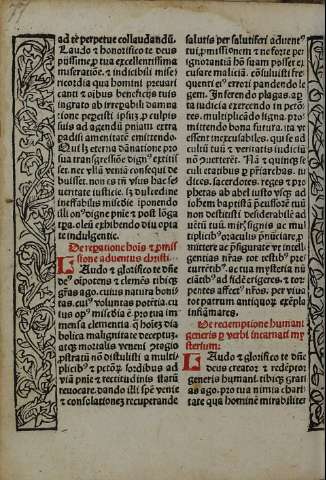 ad te perpetue collaudandū.
Laudo & honorifico te deus
piissime, p tua excellentissima
miseratiōe. & indicibili mise
ricordia qua homini preuari
canti & oībus beneficijs tuis
ingrato ab irreṗabili damna
tione peperisti
suis ad agendū pniam extra
padisi amenitatē emittendo.
Qui lz eterna dānatione pro
sua transgressiōe dignꝰ extitis
set. nec vllā veniā consequi de
buisset. non eū in vltus hac sed
veritate iusticie. sz dulcedine
ineffabilis misedie iponendo
illi onꝰ digne pnie & post lōga
tpa. oleū exhibendo diu opta
te indulgentie.
De reṗatione hoīs & pmis
sione aduentus christi.
Laudo & glorifico te dn̄e
deꝰ oīpotens & clemēs tibiqꝫ
grās ago. cuius natura boni
tas. cuiꝰ voluntas potētia. cu
ius opꝰ misedia & pro tua im
mensa clementia
bolica malignitate deceptuȝ.
atqꝫ mortalis veneni
pstratū nō distulisti a multi
plicibꝰ & petōꝝ sordibus ad
viā pnie & rectitudinis statū
reuocare. dando illi spē venie
& consolationez recuperande
salutis per salutiferi aduentꝰ
tui pmissionem & ne forte per
ignorantiā hō suam posset ex
cusare maliciā. cōsuluisti fre
quenti eiꝰ errori pandendo le
gem. Inferendo plagas. ap
ta iudicia exercendo in petō
res. multiplicādo signa. pro
mittendo bona futura. ita vt
essent inexcusabiles. qui se ad
cultū tui & veritatis iudiciū
nō cōuerterēt. Nā & quinqꝫ se
culi etatibus p priarchas. iu
dices. sacerdotes. reges & pro
phetas ab abel iusto vsqꝫ ad
iohem baptistā pcussorē tuū
non destitisti desiderabilē ad
uētū tuū miris signis ac mul
tiplicibꝰ oraculis pnūciare. p
mittere ac pfigurate vt intelli
gentias nr̄as tot testibꝰ
currētibꝰ. ac tua mysteria nū
ciātibꝰ ad fidē erigeres. & tor
pentes affectꝰ nr̄os. per viua
tot patrum antiquoꝝ exēpla
inflāmares.
De redemptione humani
generis p verbi incarnati my
sterium.
Laudo & glorifico te dn̄e
deus creator & redēptor
generis humani. tibiqꝫ grati
as ago. pro tua nimia chari
tate qua hominē mirabiliter